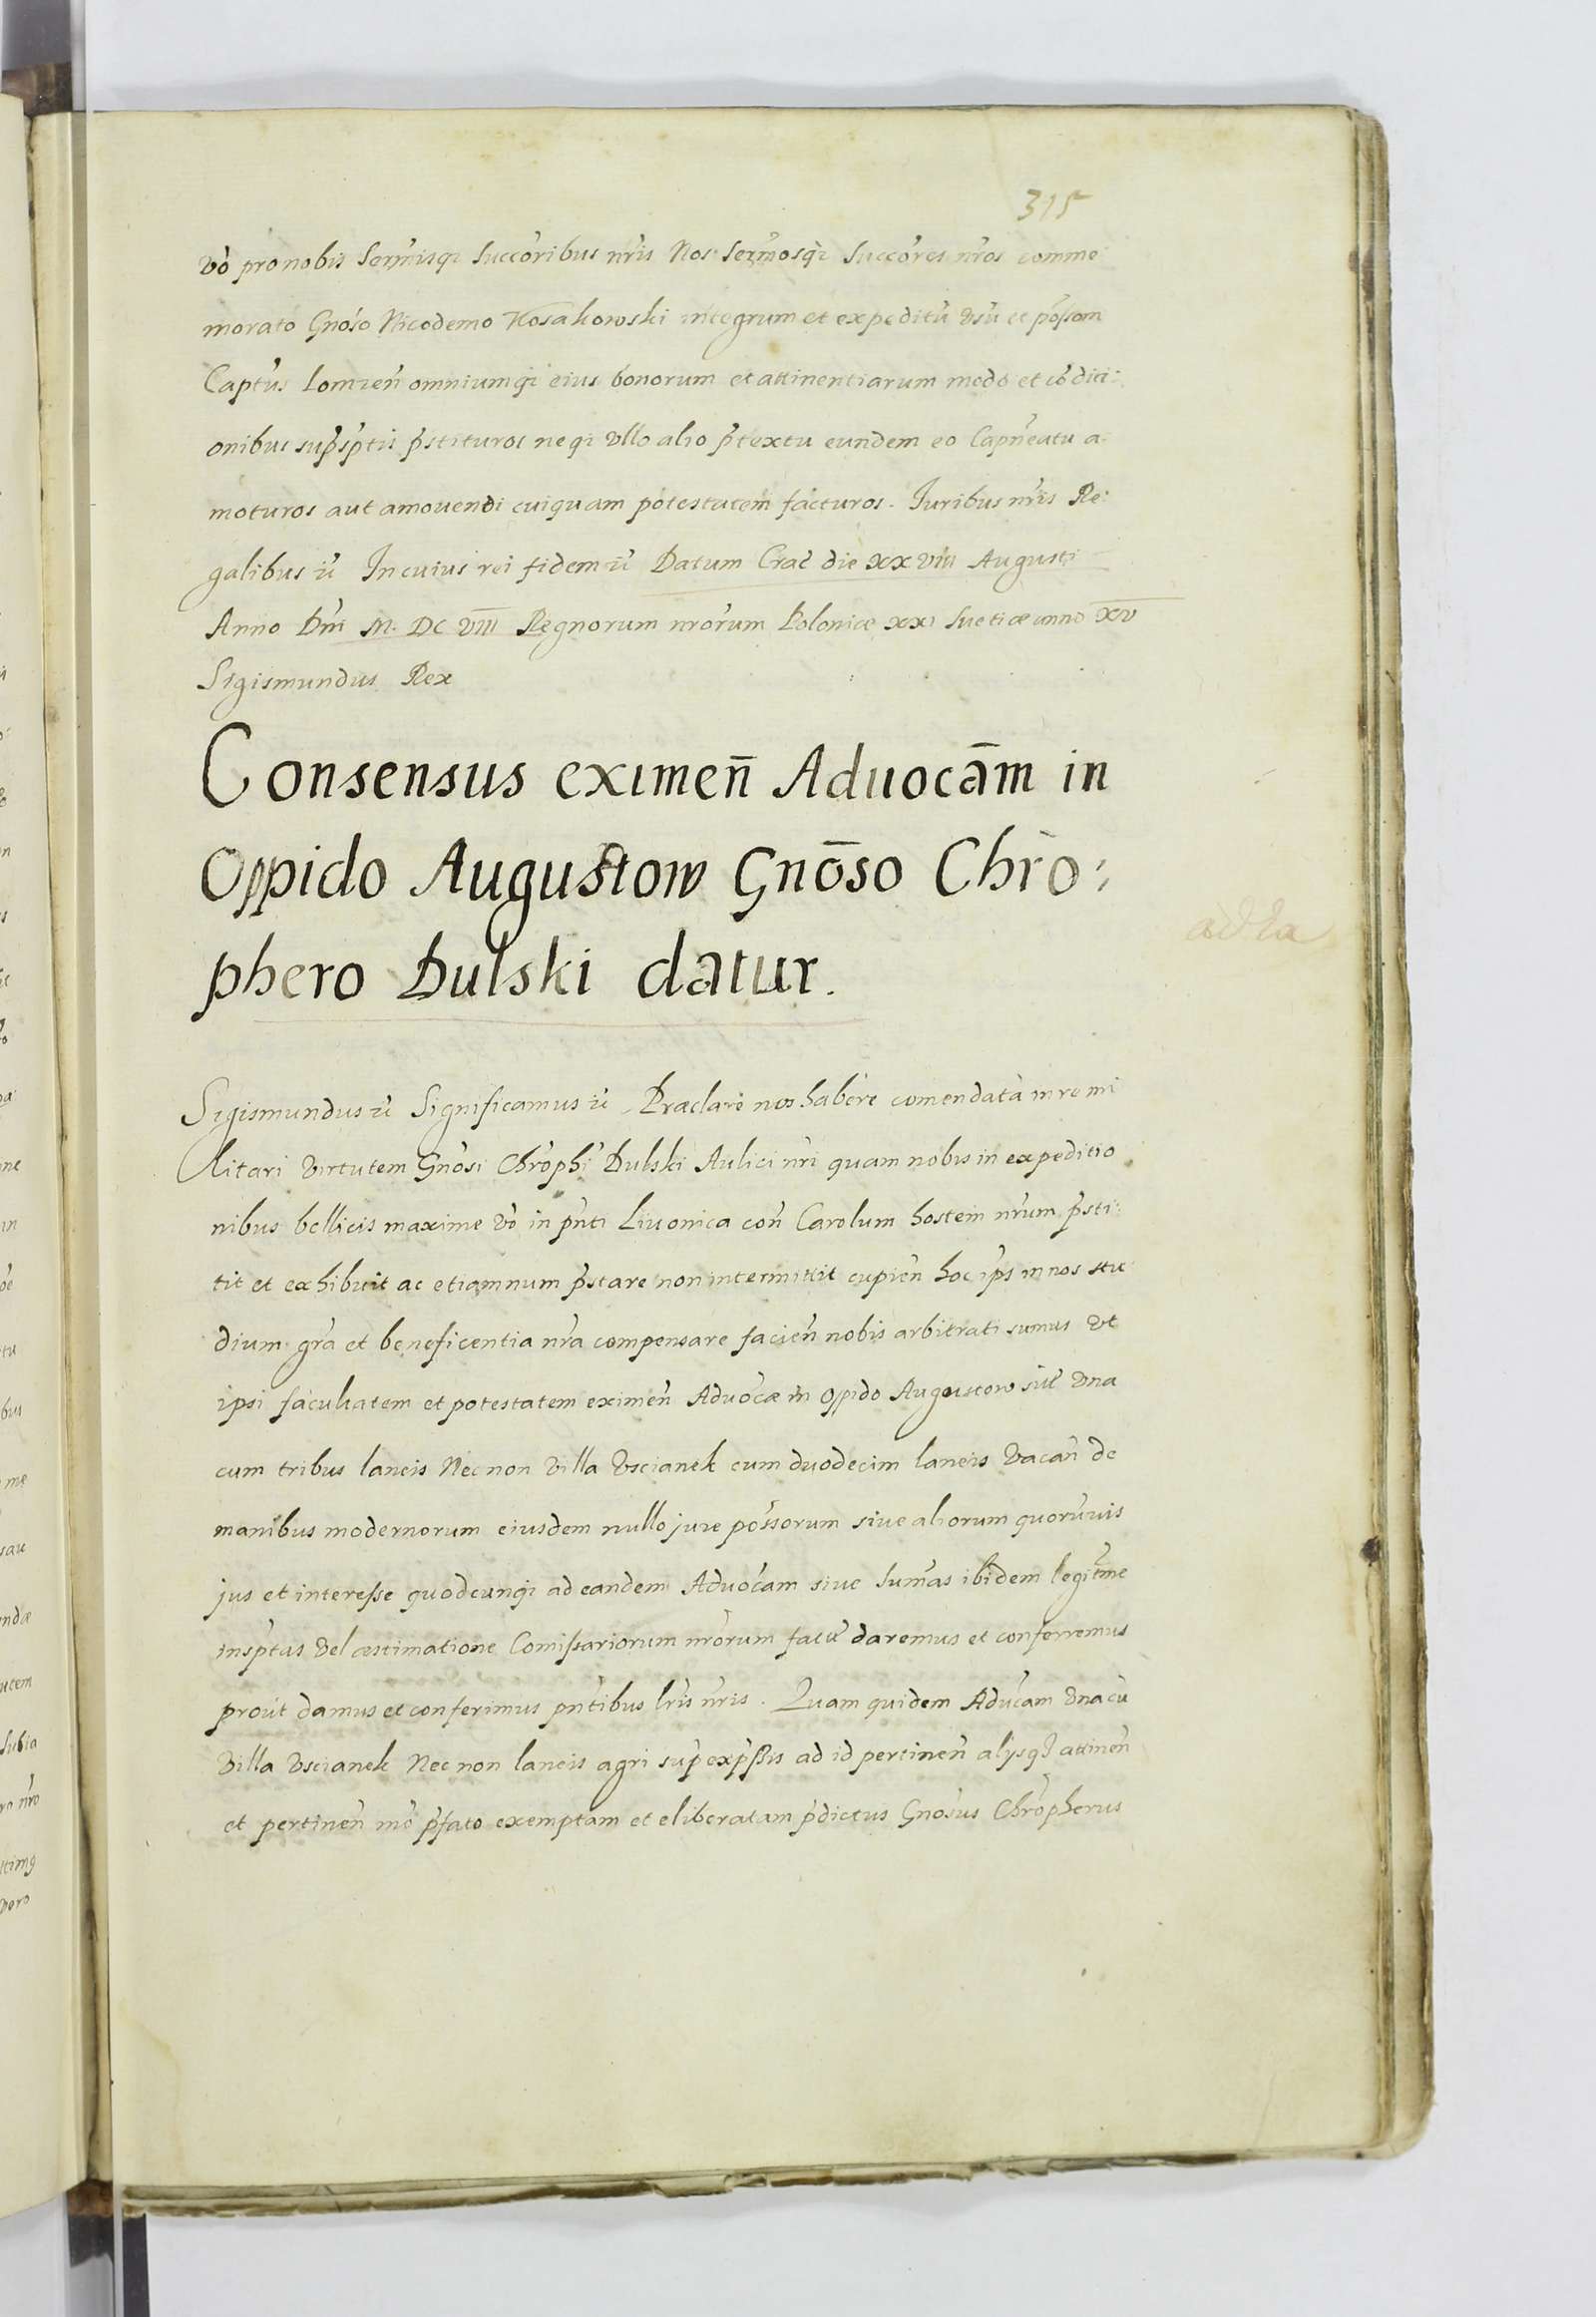 315
vo͂ pro nobis Serm̃isqʒ Succo͂ribus nr̃is Nos Serm̃osqʒ Succo͂res nr̃os comme:
morato Gno͂so Nicodemo Kosakowski integrum et expeditu͂ vsu͂ et po͂ssom
Capt͂us Lomzen͂ omniumqʒ eius bonorum et attinentiarum modo et co͂diti:
onibus sup͂sp͂tis p͂stituros neqʒ vllo alio p͂textu eundem eo Capn͂eatu a:
moturos aut amouendi cuiquam potestatem facturos. Iuribus nr̃is Re:
galibus ꝛc̃ In cuius rei fidem ꝛc̃ Datum Crac̃ die xx viii Augusti
Anno Dn͂i M. DC VIII Regnorum nr̃orum Poloniæ xxi Suetiæ anno xv
Sigismundus Rex
Consensus eximen̄ Aduocām in
Oppido Augustow Gnōso Chrō:
phero Dulski datur.
ad ła
Sigismundus ꝛc̃ Significamus ꝛc̃. Præclare nos habere comendata͂ in re mi
litari virtutem Gno͂si Chro͂phi Dulski Aulici nr̃i quam nobis in expeditio
nibus bellicis maxime vo͂ in pn͂ti Liuonica con͂ Carolum hostem nr̃um p͂sti:
tit et exhibuit ac etiamnum p͂stare non intermittit cupien͂ hoc ip͂s in nos stu
dium gr̃a et beneficentia nr̃a compensare facien͂ nobis arbitrati sumus vt
ipsi facultatem et potestatem eximen͂ Aduo͂cæ in Oppido Augustow sit͂ vna
cum tribus laneis Nec non villa Vscianek cum duodecim laneis vacan͂ de
manibus modernorum eiusdem nullo jure po͂ssorum siue aliorum quoru͂uis
jus et interesse quodcunqʒ ad eandem Aduo͂cam siue Sum͂as ibidem legit͂me
insp͂tas vel æstimatione Comissariorum nr̃orum fact͂ daremus et conferremus
prout damus et conferimus pn͂tibus lr̃is nr̃is. Quam quidem Adu͂cam vna cu͂
villa Vscianek Nec non laneis agri sup͂ exp͂ssis ad id pertinen͂ alijsqʒ attinen͂
et pertinen͂ mo͂ p͂fato exemptam et eliberatam p͂dictus Gno͂sus Chro͂pherus